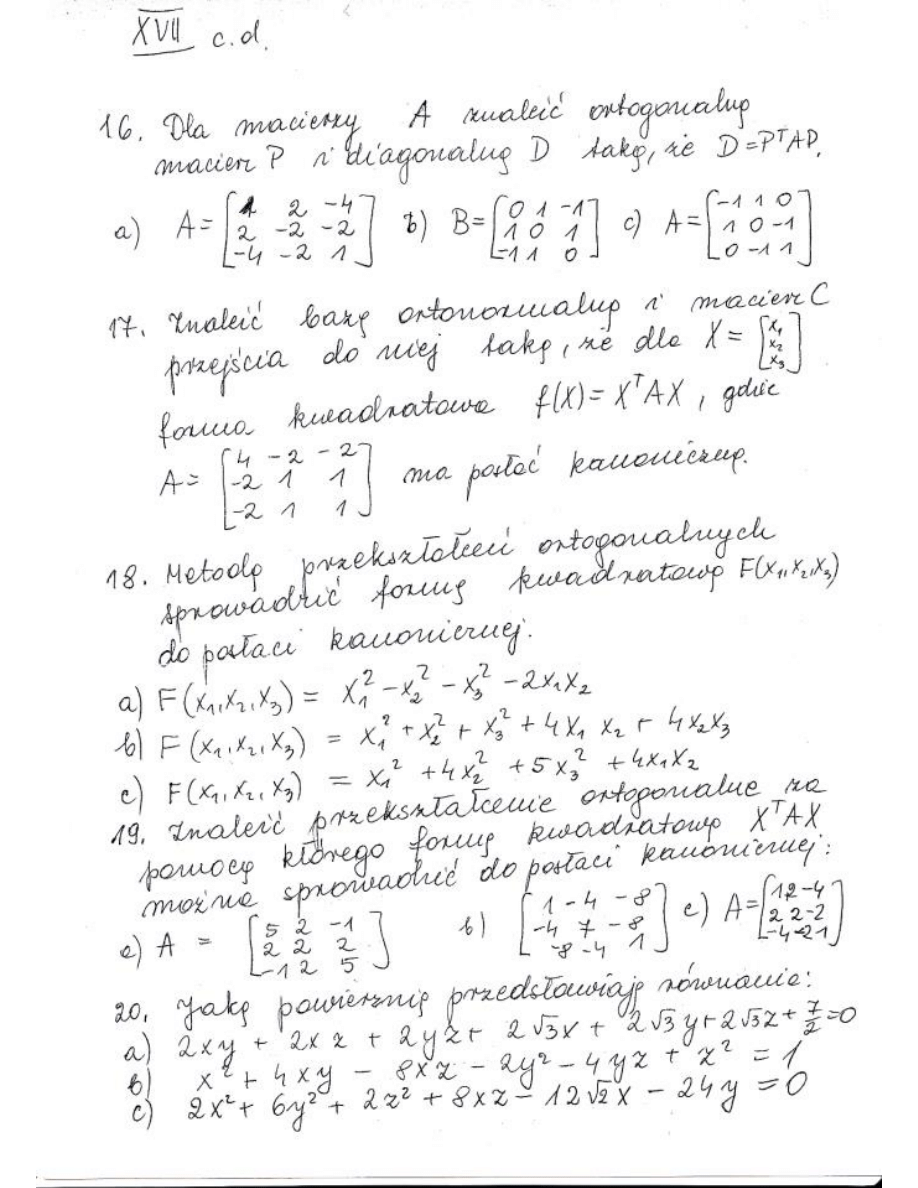 XVII c.d.
16. Dla macierzy A znaleźć ortogonalną
macierz P i diagonalną D taką, że D=PᵀAP.
a) A=[1 2 -4; 2 -2 -2; -4 -2 1] b) B=[0 1 -1; 1 0 1; -1 1 0] c) A=[-1 1 0; 1 0 -1; 0 -1 1]
17. Znaleźć bazę ortonormalną i macierz C
przejścia do niej taką, że dla X=[x₁; x₂; x₃]
forma kwadratowa f(X)=XᵀAX, gdzie
A=[4 -2 -2; -2 1 1; -2 1 1] ma postać kanoniczną.
18. Metodą przekształceń ortogonalnych
sprowadzić formę kwadratową F(x₁,x₂,x₃)
do postaci kanonicznej.
a) F(x₁,x₂,x₃) = x₁² - x₂² - x₃² - 2x₁x₂
b) F(x₁,x₂,x₃) = x₁² + x₂² + x₃² + 4x₁x₂ + 4x₂x₃
c) F(x₁,x₂,x₃) = x₁² + 4x₂² + 5x₃² + 4x₁x₂
19. Znaleźć przekształcenie ortogonalne za
pomocą którego formę kwadratową XᵀAX
można sprowadzić do postaci kanonicznej:
a) A = [5 2 -1; 2 2 2; -1 2 5] b) [1 -4 -8; -4 7 -8; -8 -4 1] c) A=[1 2 -4; 2 2 -2; -4 -2 1]
20. Jaką powierznię przedstawiają równania:
a) 2xy + 2xz + 2yz + 2√3x + 2√3y + 2√3z + 7/2 = 0
b) x² + 4xy - 8xz - 2y² - 4yz + z² = 1
c) 2x² + 6y² + 2z² + 8xz - 12√2x - 24y = 0